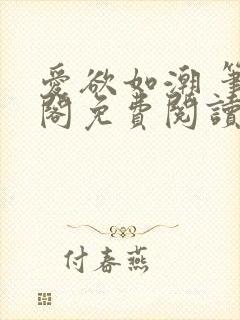 愛欲如潮 筆
閣免費閱讀
付春燕